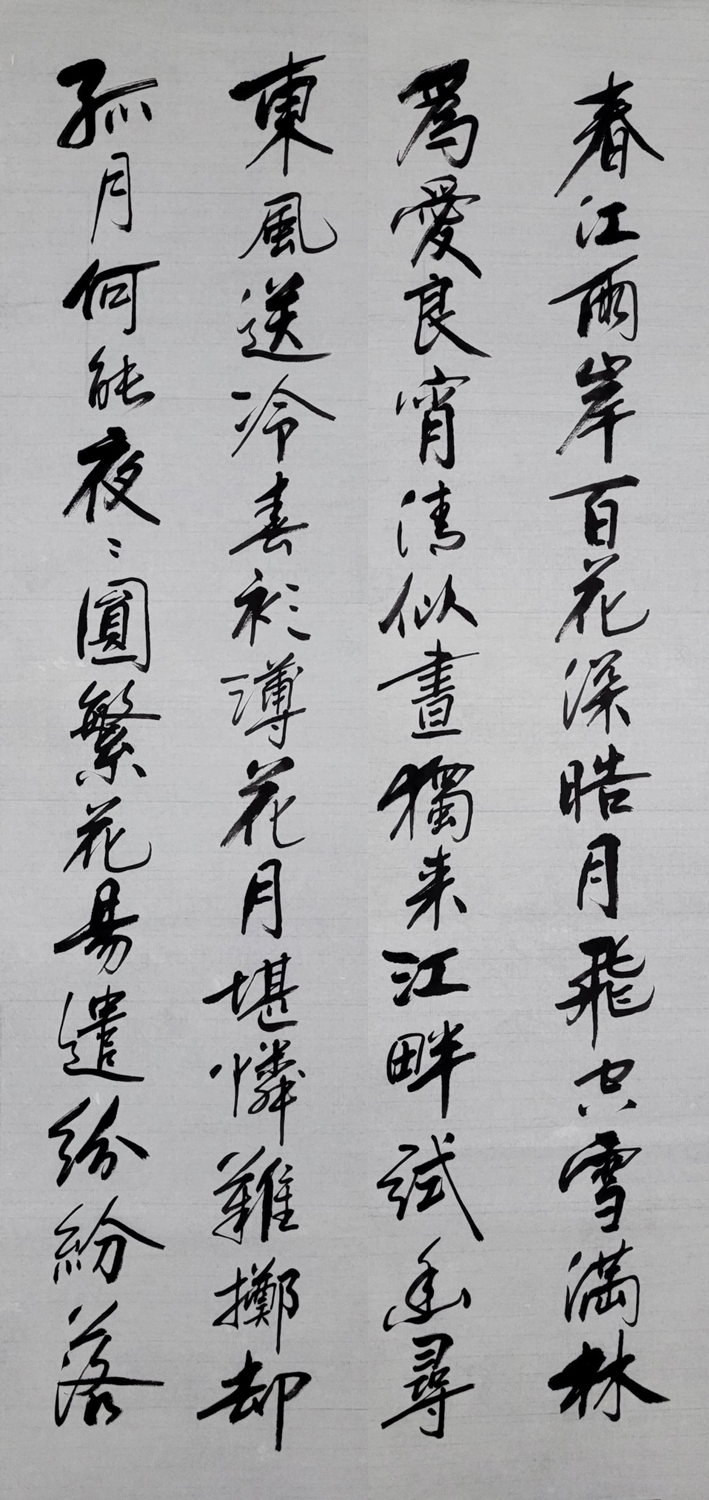 春江兩岸百花深晧月飛空雪滿林
為愛良宵清似晝獨来江畔試幽尋
東風送冷春衫薄花月堪憐難擲却
孤月何能夜〻圓繁花易遣紛紛落